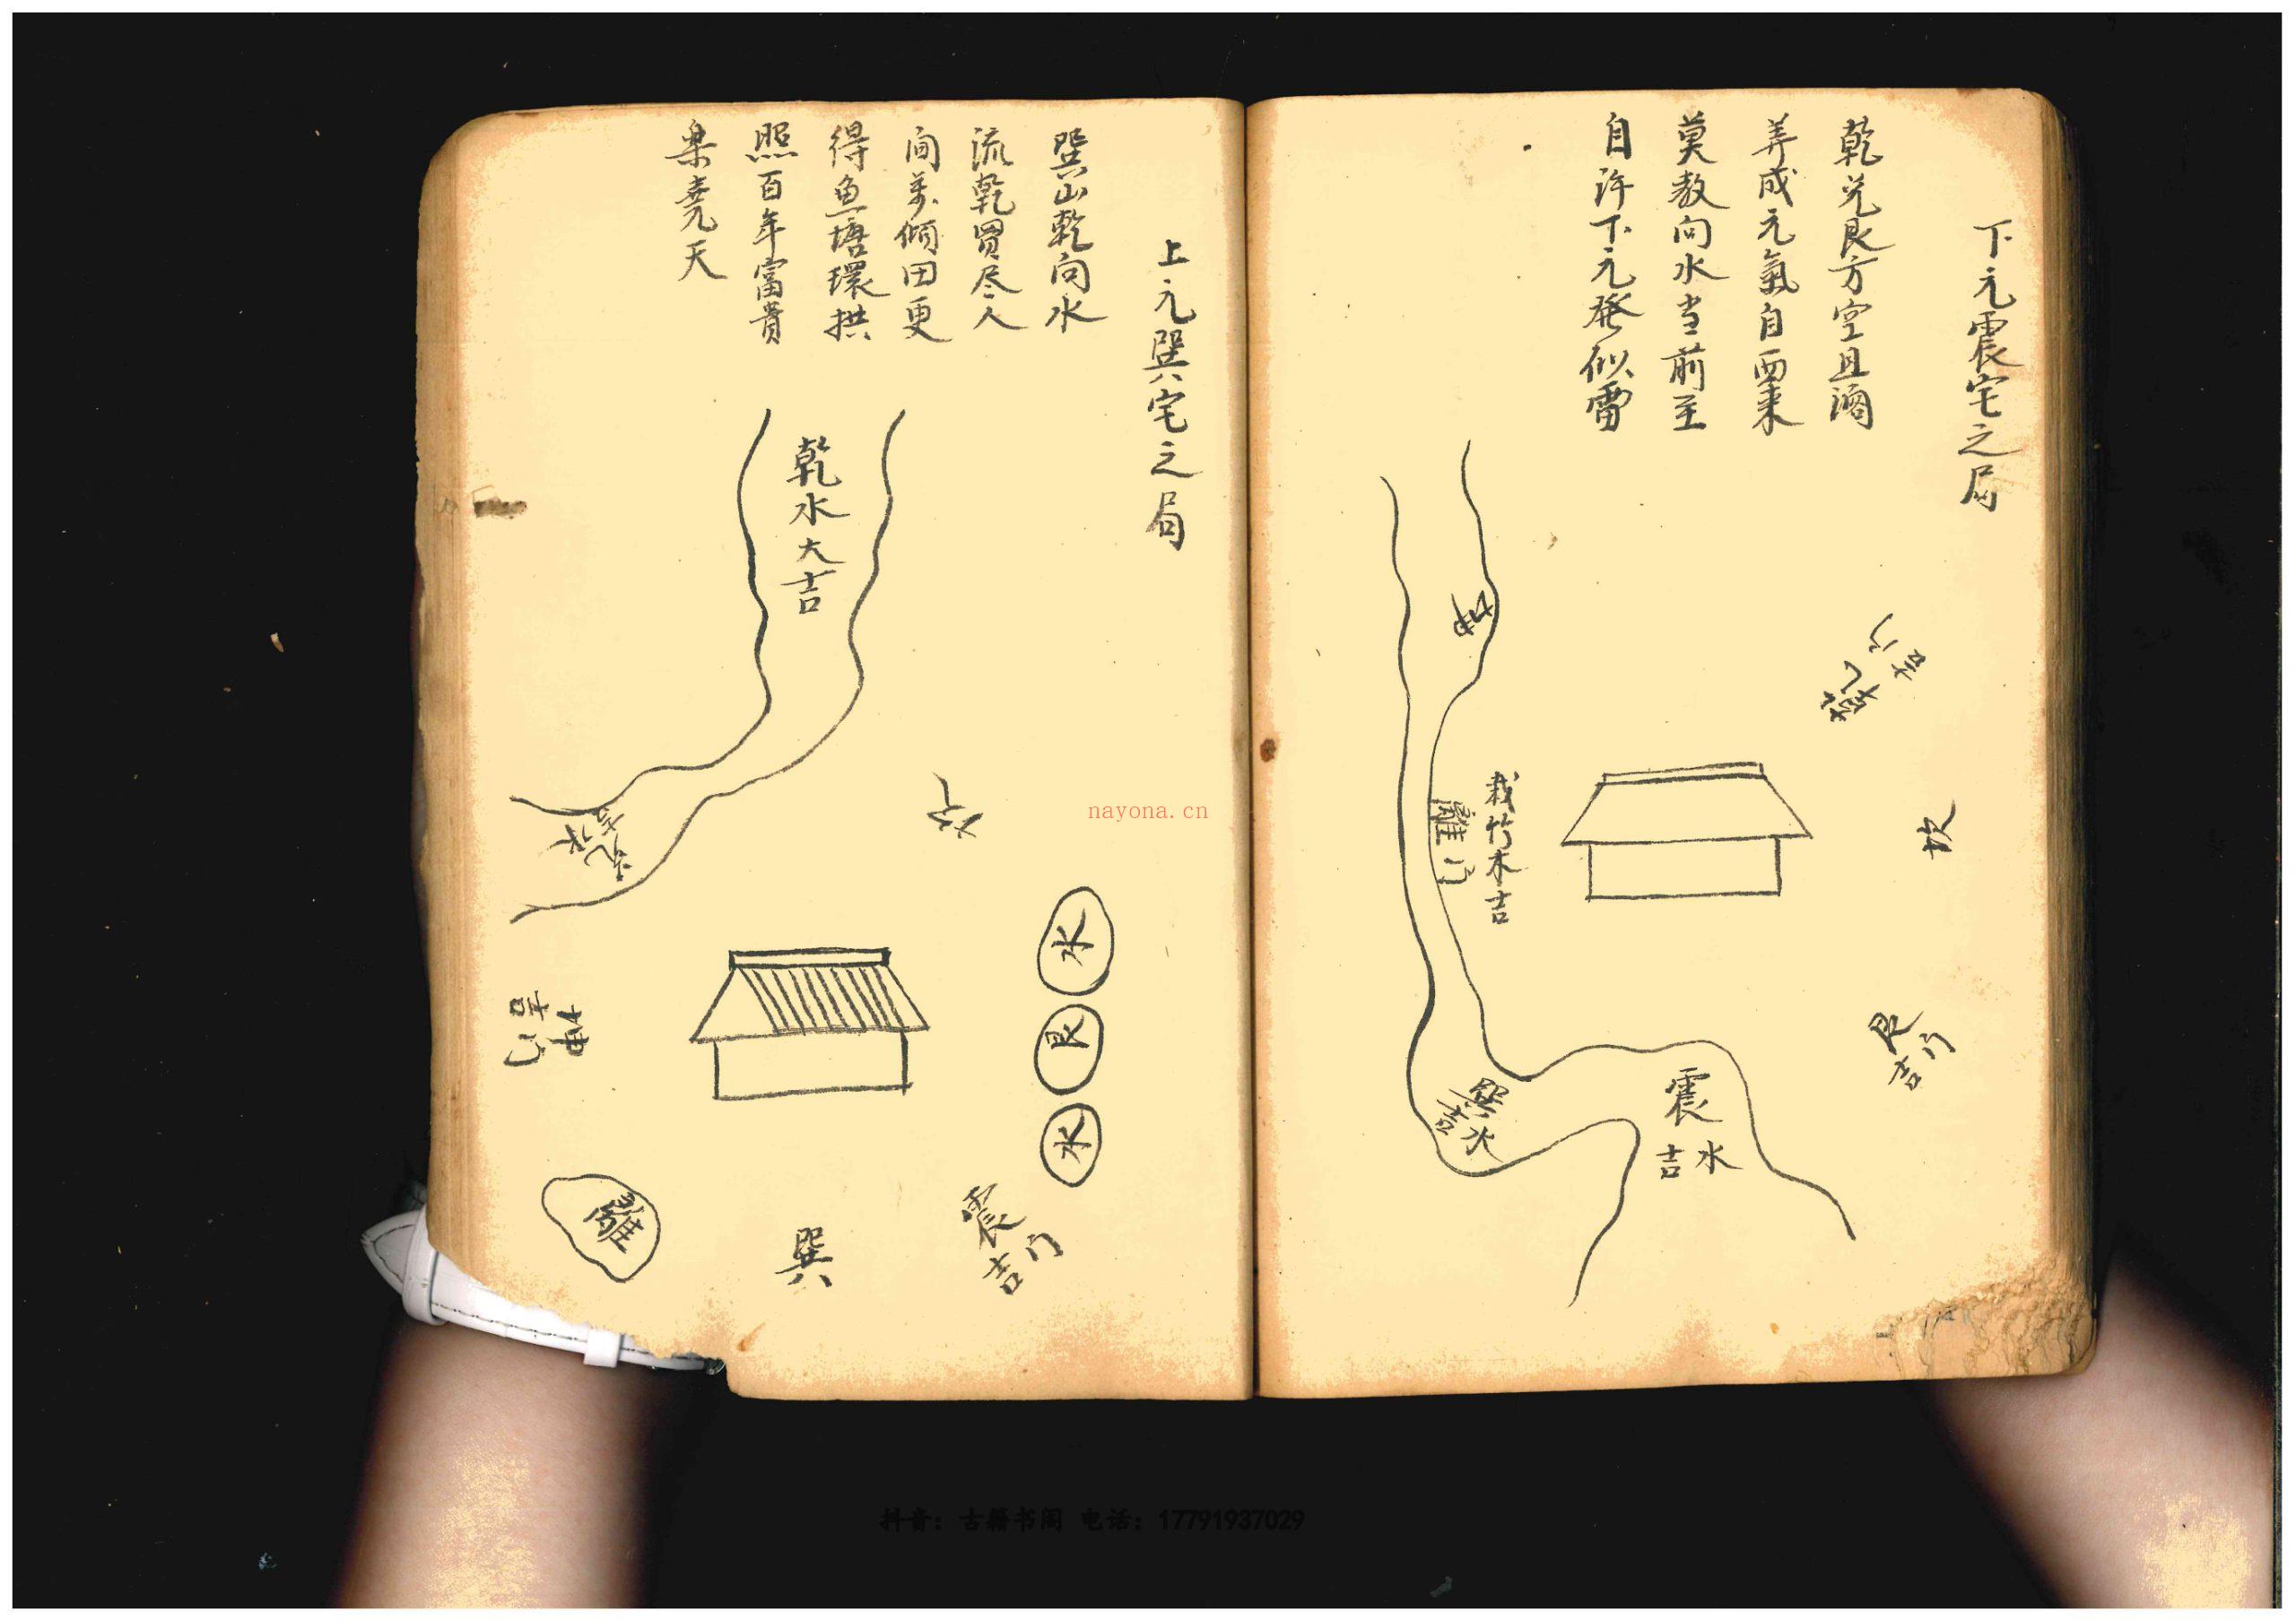 下元震宅之局
乾兑艮方空且濶
养成元氣自西来
莫教向水当前至
自许下元發似雷
乾
吉门
坎
艮门
吉
坤
栽竹木吉
離门
巽水
吉
震
吉水
上元巽宅之局
巽山乾向水
流乾買尽人
间萬傾田更
得魚塘環拱
照百年富貴
樂堯天
乾水大吉
坎
水
艮
水
震门
吉
巽
離
nayona.cn
抖音：古籍书阁 电话：17791937029